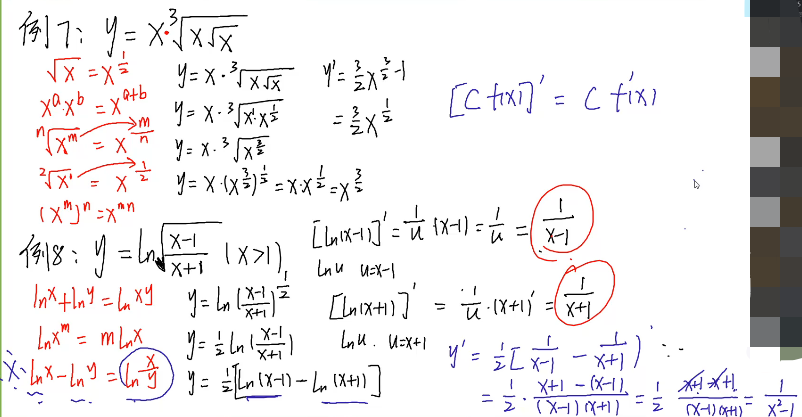 例7: y = x·³√(x√x)
√x = x^(1/2)
x^a x^b = x^(a+b)
ⁿ√(x^m) = x^(m/n)
²√(x¹) = x^(1/2)
(x^m)^n = x^(mn)
y = x·³√(x√x)
y = x·³√(x¹·x^(1/2))
y = x·³√(x^(3/2))
y = x·(x^(3/2))^(1/3) = x·x^(1/2) = x^(3/2)
y' = 3/2 x^(3/2 - 1)
= 3/2 x^(1/2)
[C f(x)]' = C f'(x)
例8: y = ln√((x-1)/(x+1)) (x>1)
lnx + lny = lnxy
lnx^m = mlnx
lnx - lny = ln x/y
y = ln((x-1)/(x+1))^(1/2)
y = 1/2 ln((x-1)/(x+1))
y = 1/2[ln(x-1) - ln(x+1)]
[ln(x-1)]' = 1/u (x-1) = 1/u = 1/(x-1)
lnu u=x-1
[ln(x+1)]' = 1/u·(x+1)' = 1/(x+1)
lnu. u=x+1
y' = 1/2[1/(x-1) - 1/(x+1)]
= 1/2 · (x+1-(x-1))/((x-1)(x+1)) = 1/2 (x+1-x+1)/((x-1)(x+1)) = 1/(x²-1)